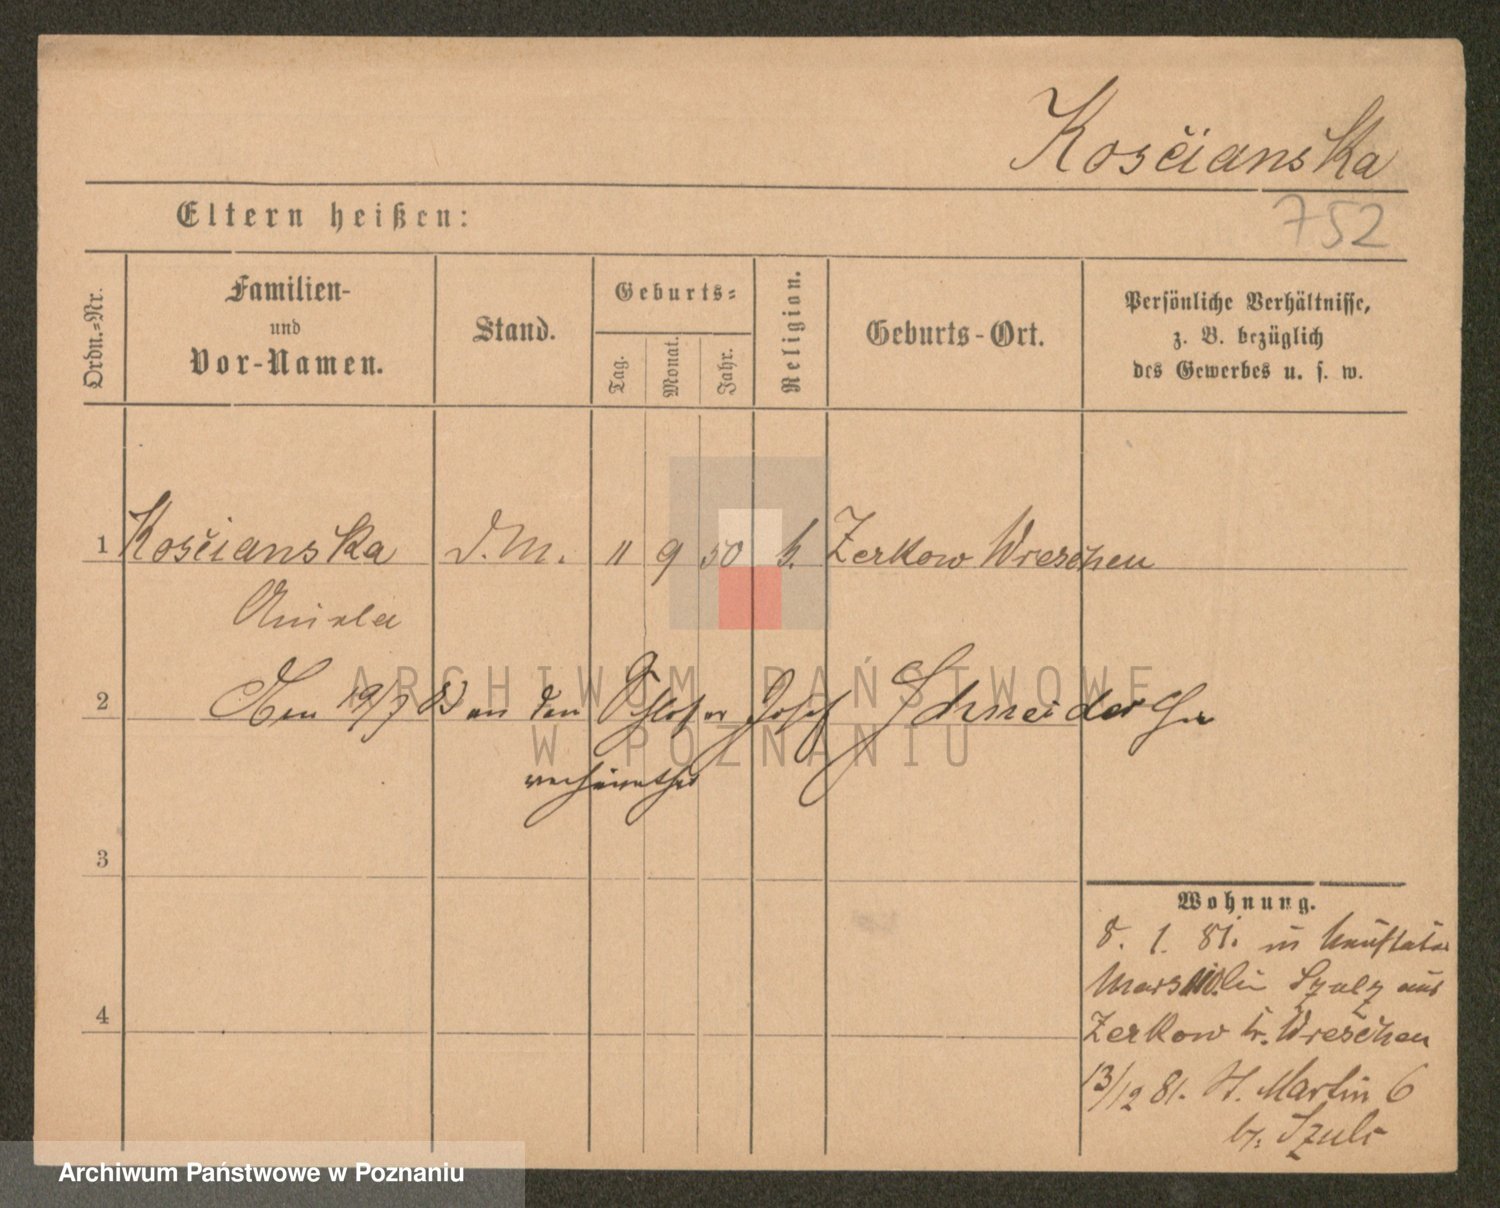 Kosčianska
752
Eltern heißen:
Ordn.=Nr.
Familien-
und
Vor-Namen.
Stand.
Geburts=
Tag.
Monat.
Jahr.
Religion.
Geburts-Ort.
Persönliche Verhältnisse,
z. B. bezüglich
des Gewerbes u. s. w.
1 Kosčianska D. M. 11 9 50 k. Zerkow Wreschen
ARCHIWUM PAŃSTWOWE
2 Den 19/7 83 an den Schlosser Josef Schneider
W POZNANIU
verheirathet
3
Wohnung.
8. 1. 81. in
Szulz aus
4
Zerkow Kr. Wreschen
13/12 81. St. Martin 6
b. Szulc
Archiwum Państwowe w Poznaniu